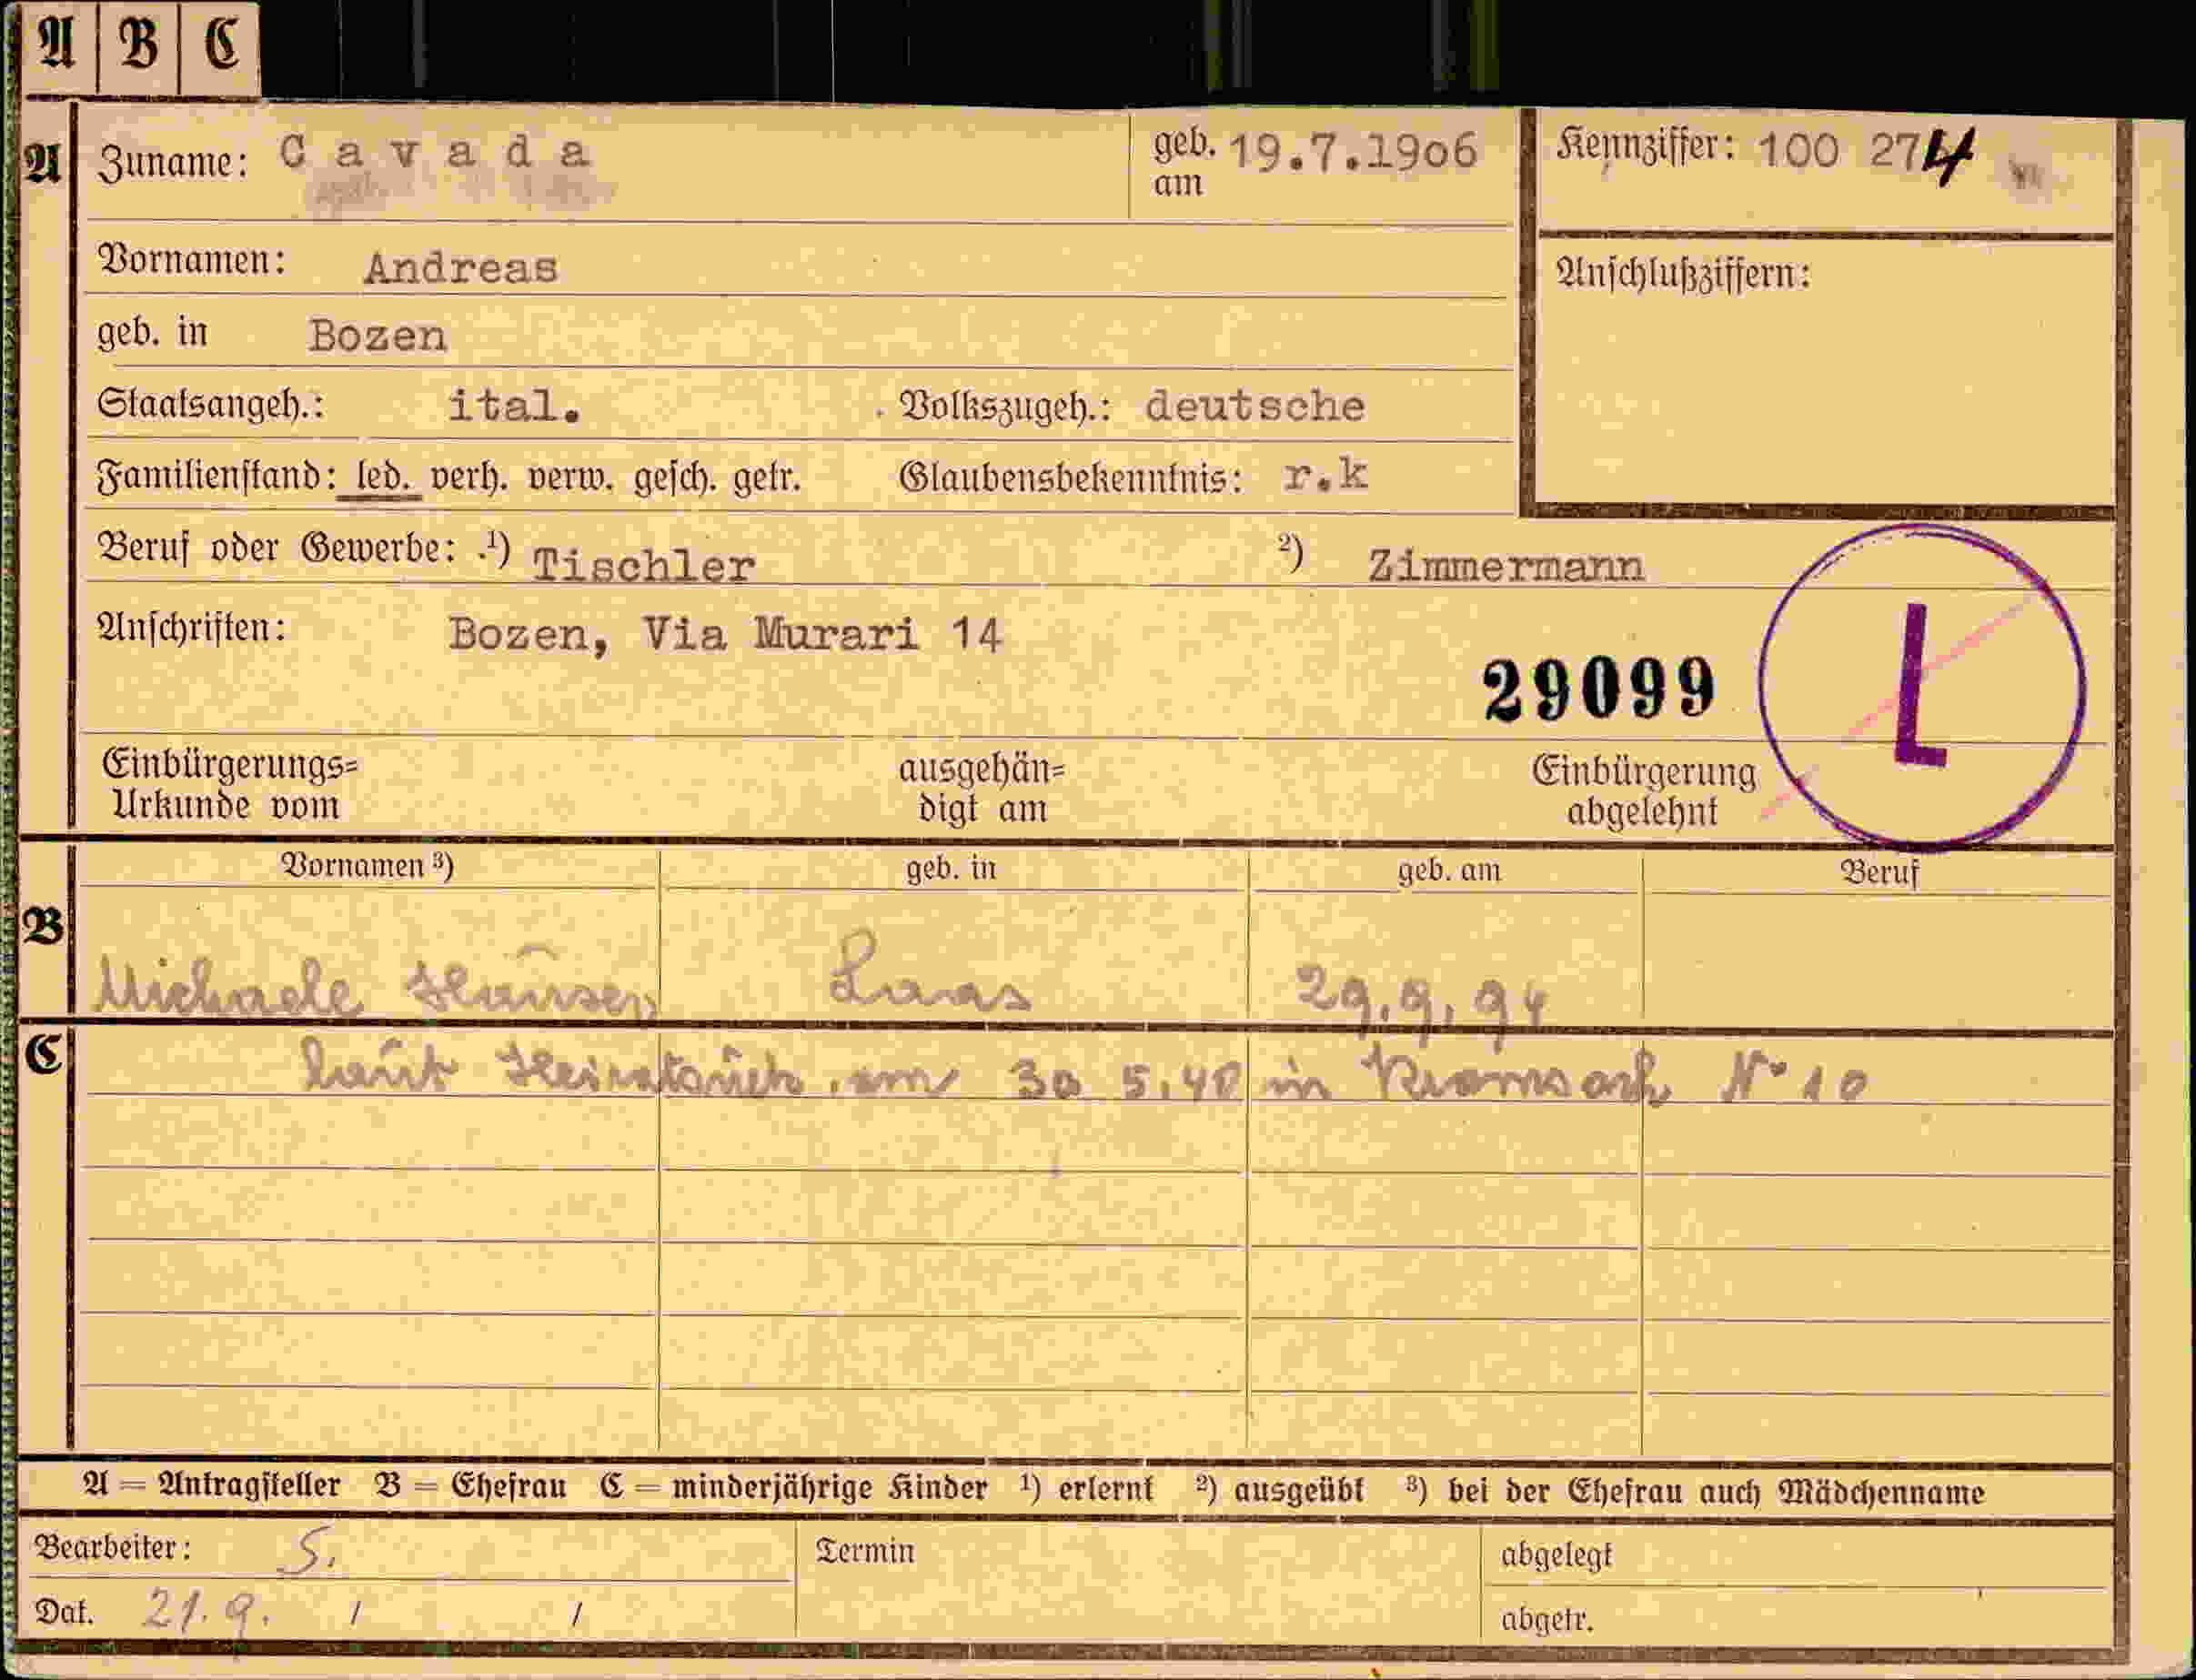 A B C
A Zuname: Cavada geb. am 19.7.1906 Kennziffer: 100 274
Vornamen: Andreas Anschlußziffern:
geb. in Bozen
Staatsangeh.: ital. Volkszugeh.: deutsche
Familienstand: led. verh. verw. gesch. getr. Glaubensbekenntnis: r.k
Beruf oder Gewerbe: ¹) Tischler ²) Zimmermann
Anschriften: Bozen, Via Murari 14
29099 L
Einbürgerungs= ausgehän= Einbürgerung
Urkunde vom digt am abgelehnt
Vornamen ³) geb. in geb. am Beruf
B
Michaele Laas 29.9.94
C
laut am 30 5.40 in Kramsach N° 10
A = Antragsteller B = Ehefrau C = minderjährige Kinder ¹) erlernt ²) ausgeübt ³) bei der Ehefrau auch Mädchenname
Bearbeiter: S. Termin abgelegt
Dat. 21.9. / / abgetr.